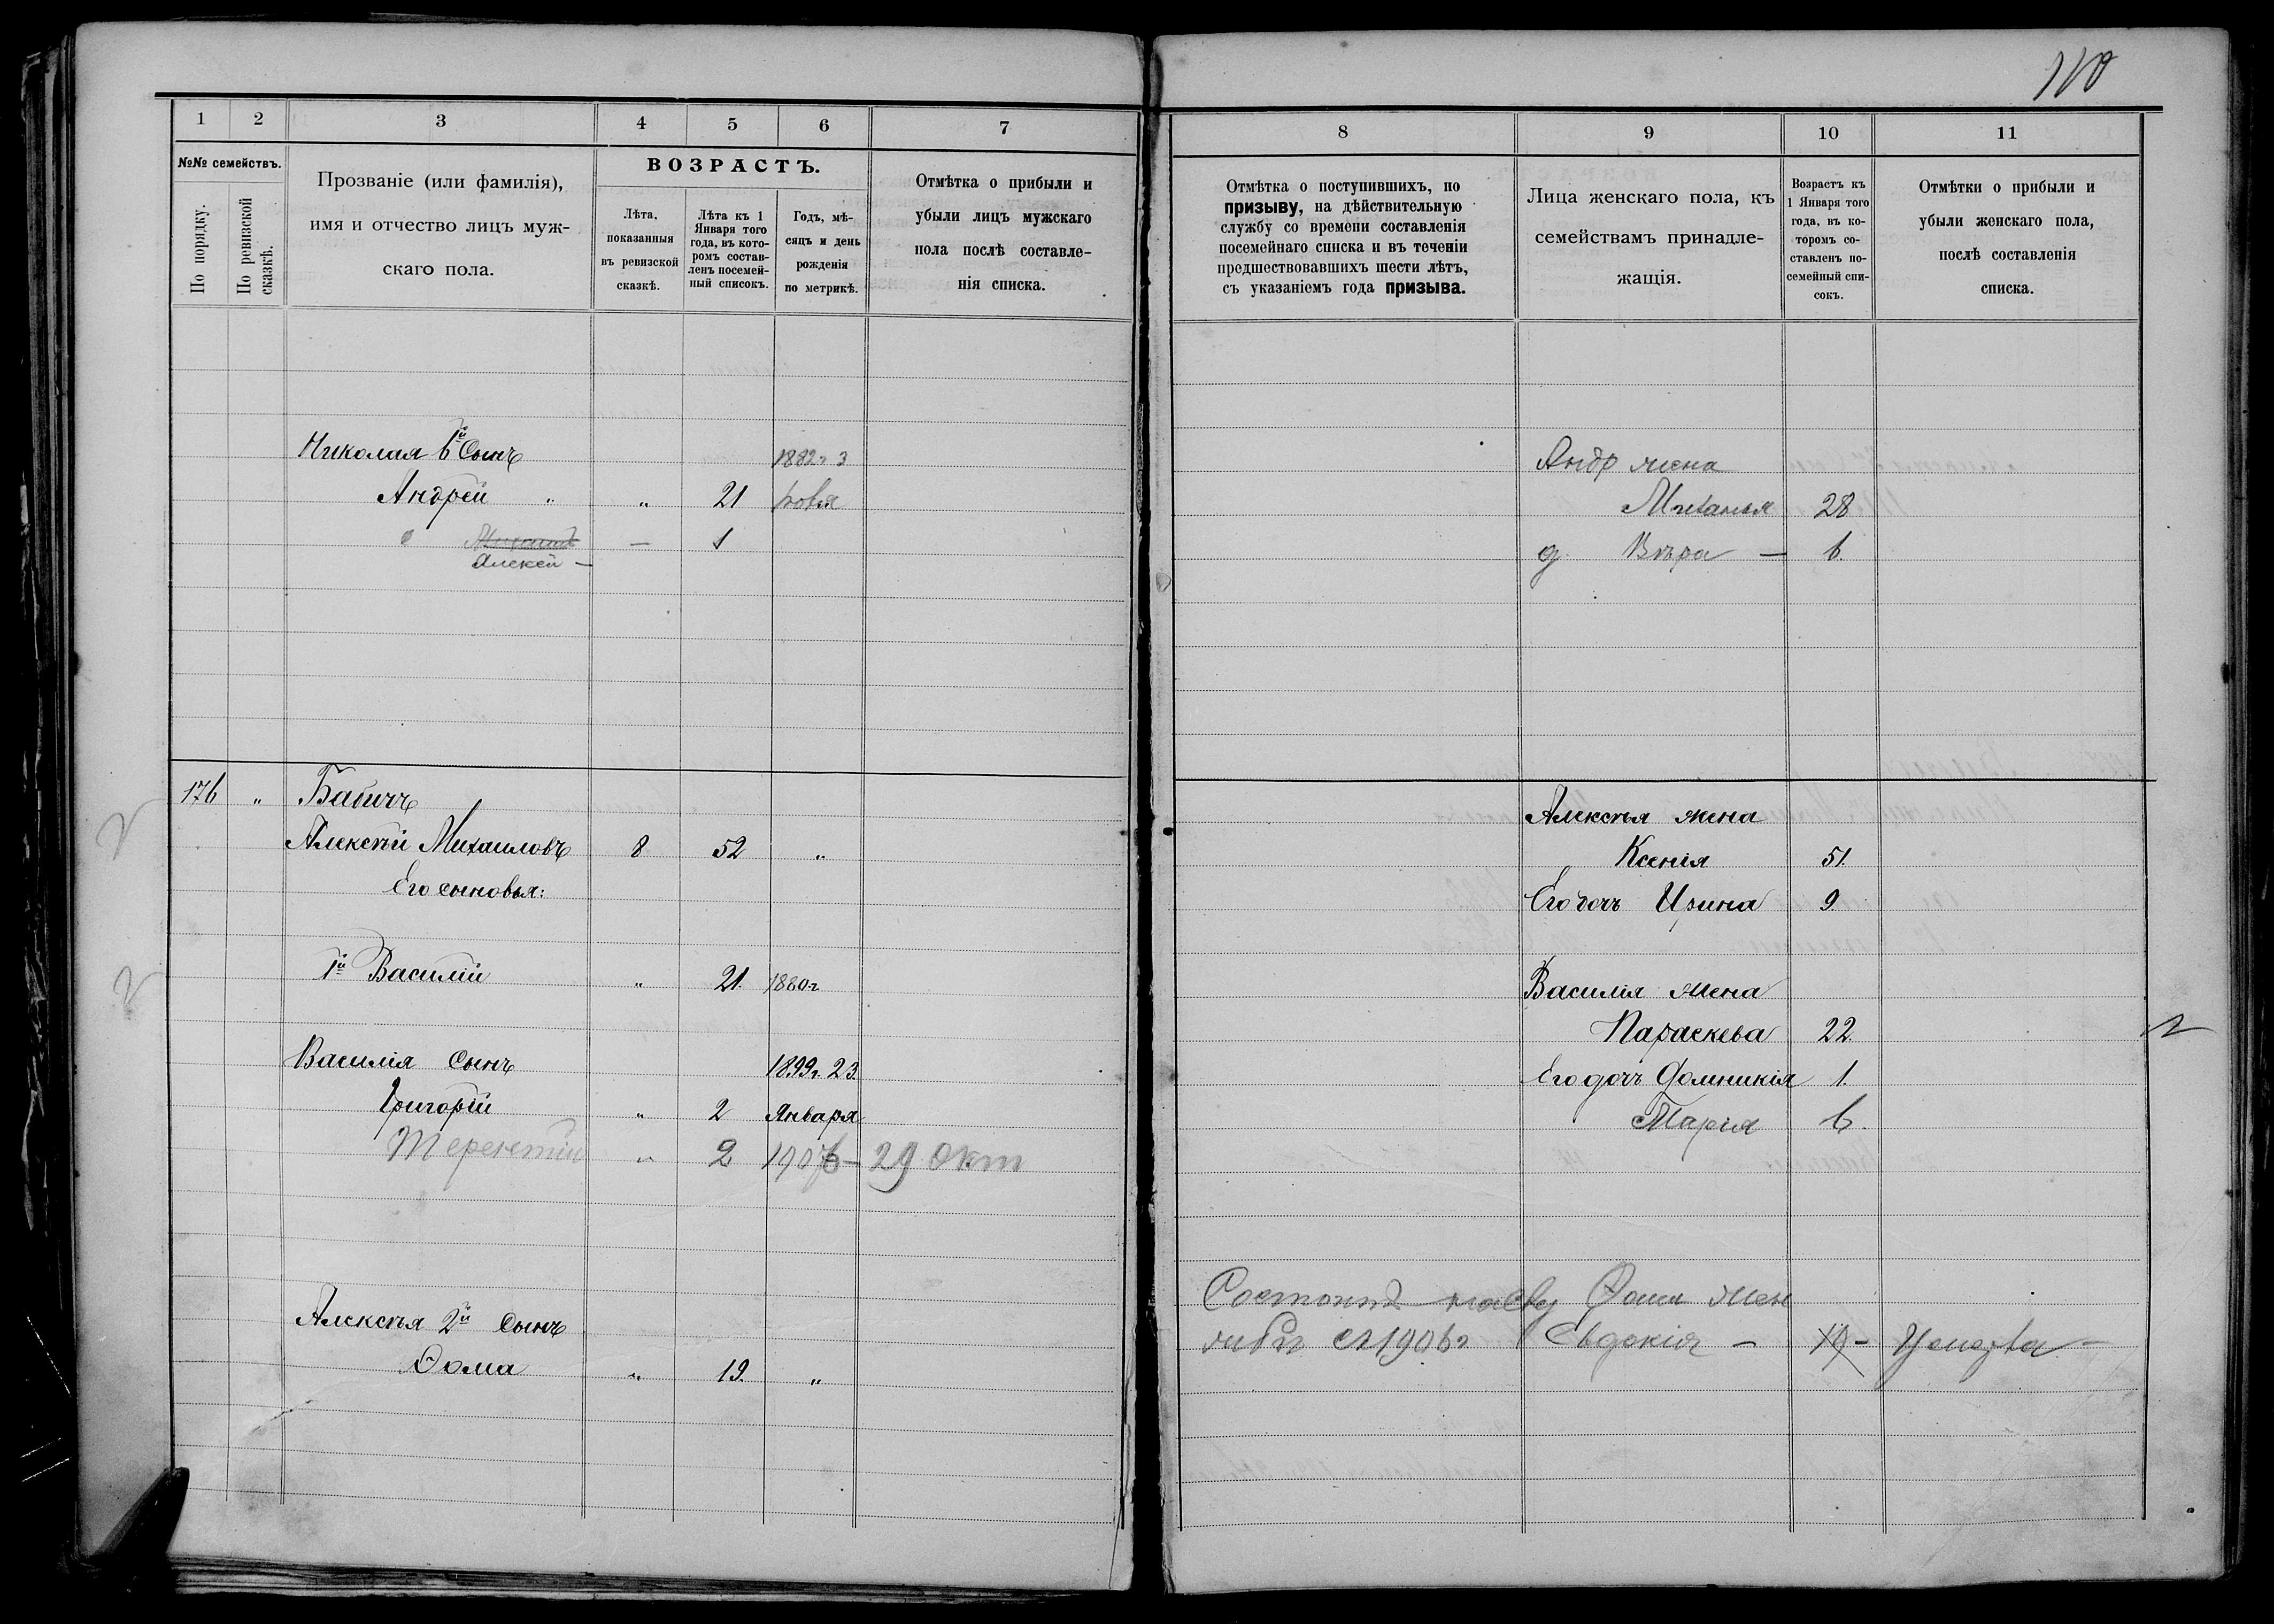 110
1 2 3 4 5 6 7
№№ семействъ.
По порядку.
По ревизской сказкѣ.
Прозваніе (или фамилія),
имя и отчество лицъ муж-
скаго пола.
ВОЗРАСТЪ.
Лѣта,
показанныя
въ ревизской
сказкѣ.
Лѣта къ 1
Января того
года, въ кото-
ромъ состав-
ленъ посемей-
ный списокъ.
Годъ, мѣ-
сяцъ и день
рожденія
по метрикѣ.
Отмѣтка о прибыли и
убыли лицъ мужскаго
пола послѣ составле-
нія списка.
Николая 6й Сынъ 1882г 3
Андрей " " 21 ноя
Михаилъ — 1
Алексѣй —
176 " Бабичъ
Алексѣй Михаиловъ 8 52 "
Его сыновья:
1й Василій " 21. 1880г
Василія Сынъ 1899г. 23
Григорій " 2 Января
Терентій " 2 1907 — 29 Окт
Алексѣя 2й Сынъ
Ѳома " 19. "
8 9 10 11
Отмѣтка о поступившихъ, по
призыву, на дѣйствительную
службу со времени составленія
посемейнаго списка и въ теченіи
предшествовавшихъ шести лѣтъ,
съ указаніемъ года призыва.
Лица женскаго пола, къ
семействамъ принадле-
жащія.
Возрастъ къ
1 Января того
года, въ ко-
торомъ со-
ставленъ по-
семейный спи-
сокъ.
Отмѣтки о прибыли и
убыли женскаго пола,
послѣ составленія
списка.
Андр жена
28
д Вѣра — 6.
Алексѣя жена
Ксенія 51.
Его дочь Ирина 9.
Василія жена
Параскева 22.
Его дочь Домникія 1.
Марія 6.
Состоитъ Ѳома жен
съ 1906г Евдокія — 19 — Умерла —